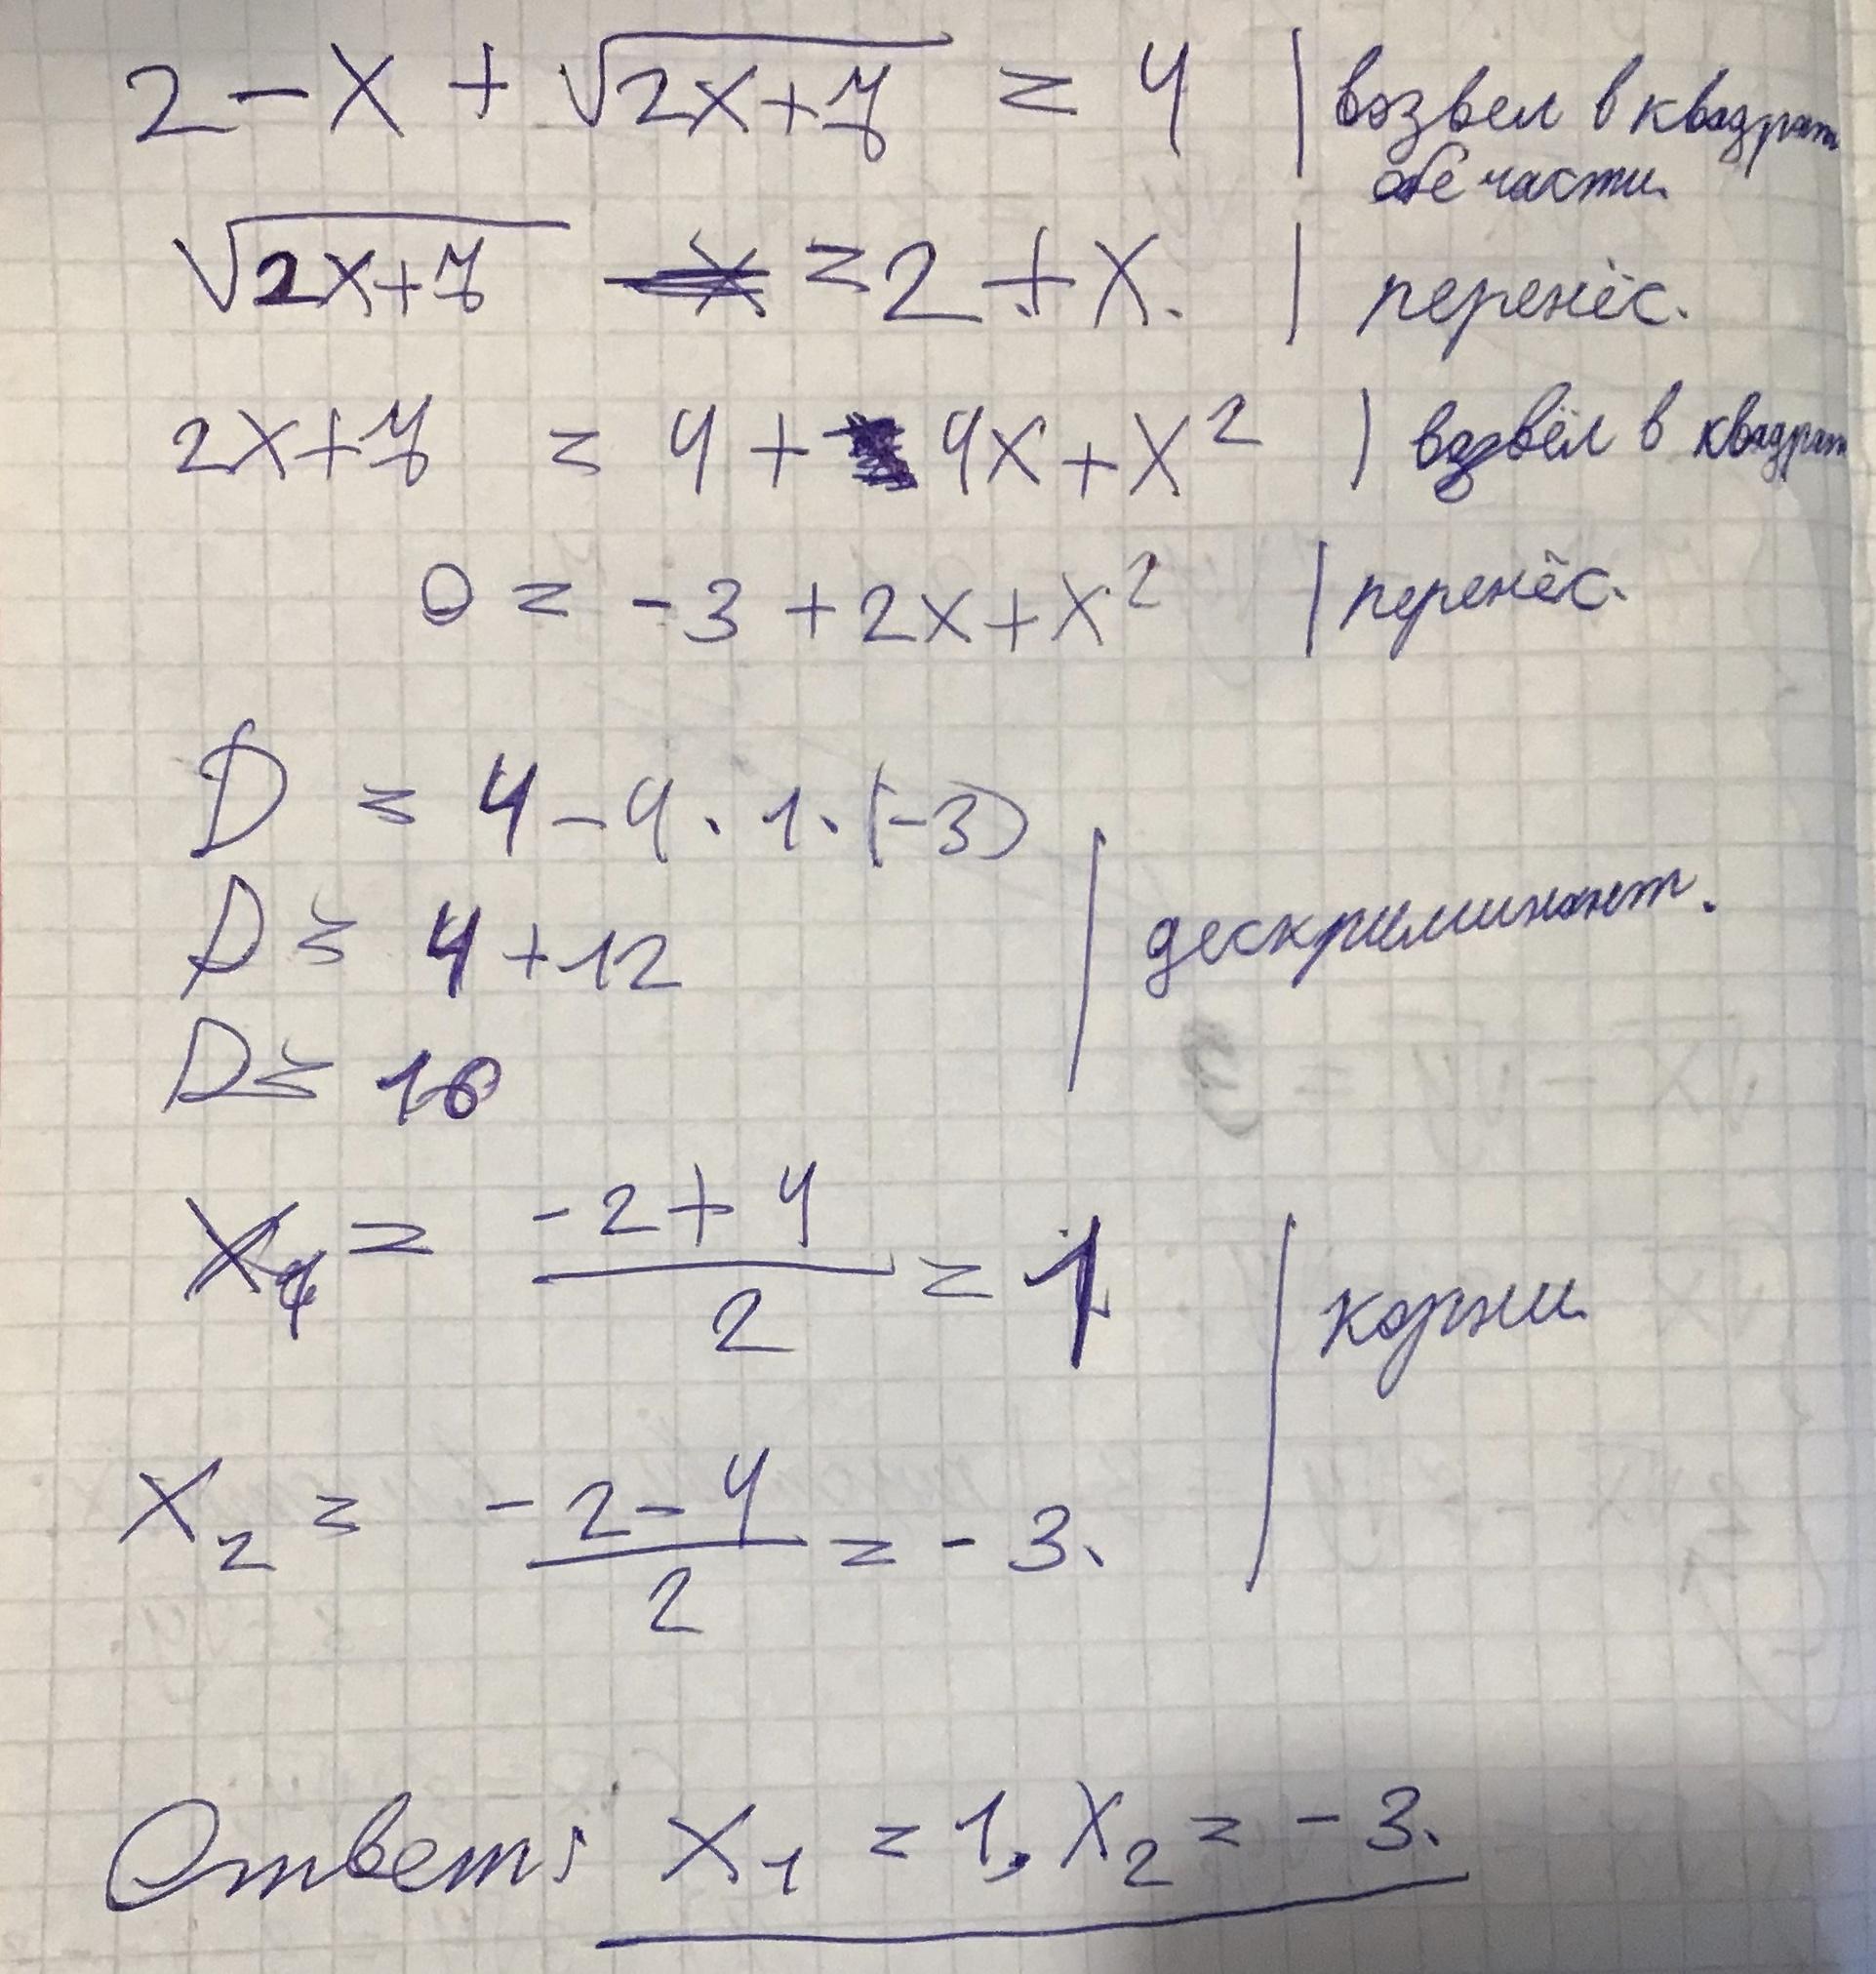 2 - x + √(2x+7) = 4 | возвел в квадрат
обе части.
√(2x+7) = 2 + x. | перенёс.
2x+7 = 4 + 4x + x² | возвёл в квадрат
0 = -3 + 2x + x² | перенёс.
D = 4 - 4 · 1 · (-3)
D = 4 + 12 | дескриминант.
D = 16
x₁ = (-2+4)/2 = 1 | корни
x₂ = (-2-4)/2 = -3.
Ответ: x₁ = 1, x₂ = -3.